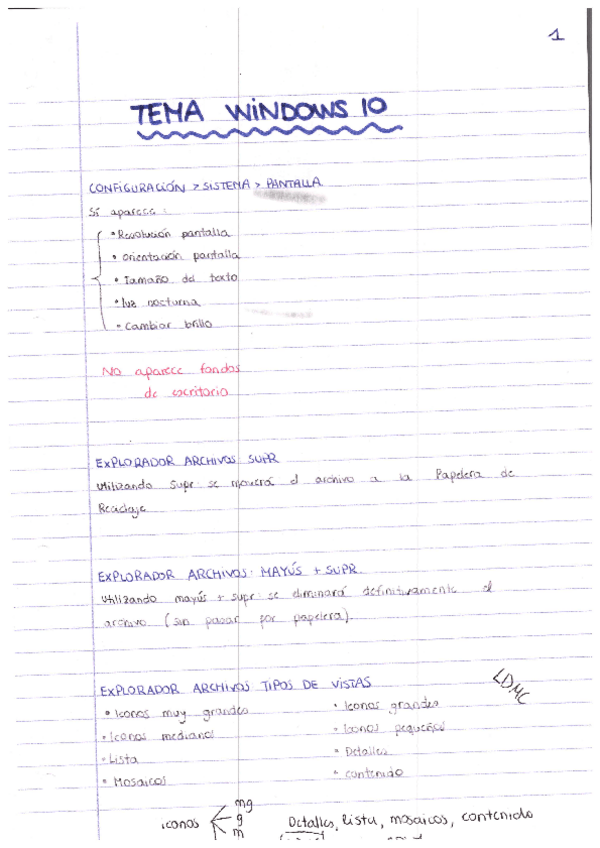 1
TEMA WINDOWS 10
CONFIGURACIÓN > SISTEMA > PANTALLA
Sí aparece :
• Resolución pantalla
• Orientación pantalla
• Tamaño del texto
• luz nocturna
• Cambiar brillo
No aparece fondos
de escritorio
EXPLORADOR ARCHIVOS SUPR
Utilizando supr se moverá el archivo a la Papelera de
Reciclaje
EXPLORADOR ARCHIVOS: MAYÚS + SUPR
Utilizando mayús + supr se eliminará definitivamente el
archivo (sin pasar por papelera).
EXPLORADOR ARCHIVOS TIPOS DE VISTAS
LDMC
• Iconos muy grandes • Iconos grandes
• Iconos medianos • Iconos pequeños
• Lista • Detalles
• Mosaicos • Contenido
mg
iconos g Detalles, lista, mosaicos, contenido
m